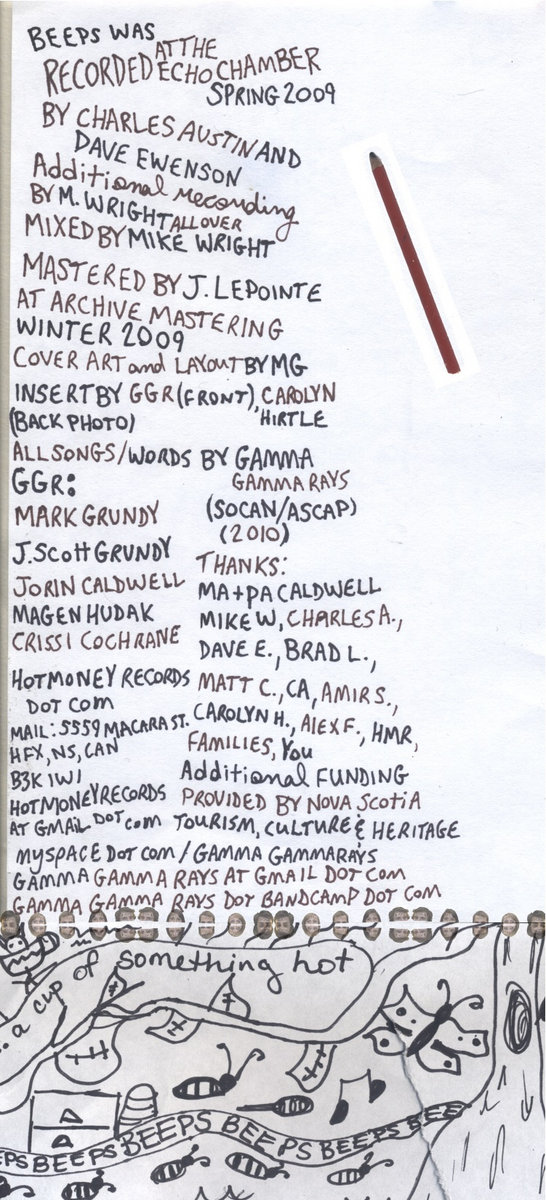 BEEPS WAS
RECORDED AT THE
ECHO CHAMBER
SPRING 2009
BY CHARLES AUSTIN AND
DAVE EWENSON
Additional recording
BY M. WRIGHT ALL OVER
MIXED BY MIKE WRIGHT
MASTERED BY J. LEPOINTE
AT ARCHIVE MASTERING
WINTER 2009
COVER ART and LAYOUT BY MG
INSERT BY GGR (FRONT), CAROLYN
HIRTLE
(BACK PHOTO)
ALL SONGS/WORDS BY GAMMA
GAMMA RAYS
(SOCAN/ASCAP)
(2010)
GGR:
MARK GRUNDY
J. SCOTT GRUNDY
JORIN CALDWELL
MAGEN HUDAK
CRISSI COCHRANE
HOTMONEY RECORDS
DOT COM
MAIL: 5559 MACARA ST.
HFX, NS, CAN
B3K 1W1
HOTMONEYRECORDS
AT GMAIL DOT COM
THANKS:
MA + PA CALDWELL
MIKE W, CHARLES A.,
DAVE E., BRAD L.,
MATT C., CA, AMIR S.,
CAROLYN H., ALEX F., HMR,
FAMILIES, YOU
Additional FUNDING
PROVIDED BY NOVA SCOTIA
TOURISM, CULTURE & HERITAGE
MYSPACE DOT COM / GAMMA GAMMARAYS
GAMMA GAMMA RAYS AT GMAIL DOT COM
GAMMA GAMMA RAYS DOT BANDCAMP DOT COM
... a cup of something hot
EPS BEEPS BEEPS BEEPS BEEPS BEE